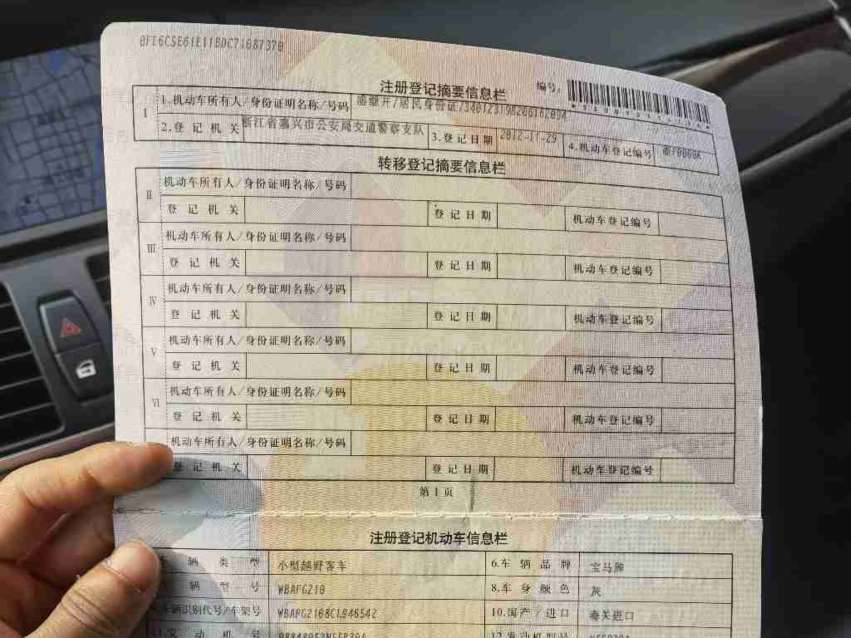 注册登记摘要信息栏
编号:
I
1.机动车所有人/身份证明名称/号码
2.登记机关 浙江省嘉兴市公安局交通警察支队 3.登记日期 2012-11-29 4.机动车登记编号
转移登记摘要信息栏
II
机动车所有人/身份证明名称/号码
登记机关 登记日期 机动车登记编号
III
机动车所有人/身份证明名称/号码
登记机关 登记日期 机动车登记编号
IV
机动车所有人/身份证明名称/号码
登记机关 登记日期 机动车登记编号
V
机动车所有人/身份证明名称/号码
登记机关 登记日期 机动车登记编号
VI
机动车所有人/身份证明名称/号码
登记机关 登记日期 机动车登记编号
机动车所有人/身份证明名称/号码
登记机关 登记日期 机动车登记编号
第1页
注册登记机动车信息栏
辆类型 小型越野客车 6.车辆品牌 宝马牌
辆型号 WBAFG210 8.车身颜色 灰
车辆识别代号/车架号 10.国产/进口 海关进口
发动机号